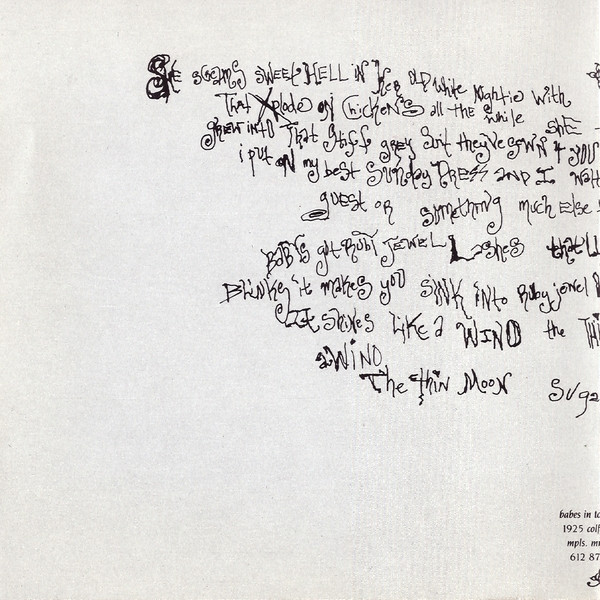 She screams sweet HELL iN her OLD white Nightie With
That Xplode on Chicken's all the while
SHE
grew into That Stiff grey Suit they've sewn 4 you
i put ON my best Sunday DRESS and I walt
guest or something much Else
BaB's got RUBY JEWEL LasHes that'LL
BLinkeg it makes you SINK into Ruby jewel
It shines Like a WIND the THi
a WIND
The thin MOON Suga
babes in to
1925 colf
mpls. mn
612 87